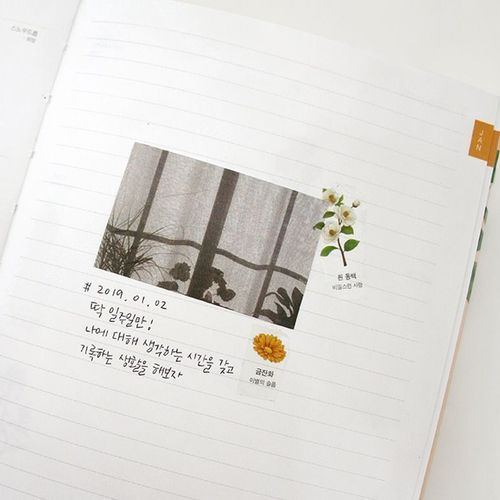 스노우드롭
희망
JAN
흰 동백
비밀스런 사랑
# 2019. 01. 02
딱 일주일만!
나에 대해 생각하는 시간을 갖고
기록하는 생활을 해보자
금잔화
이별의 슬픔